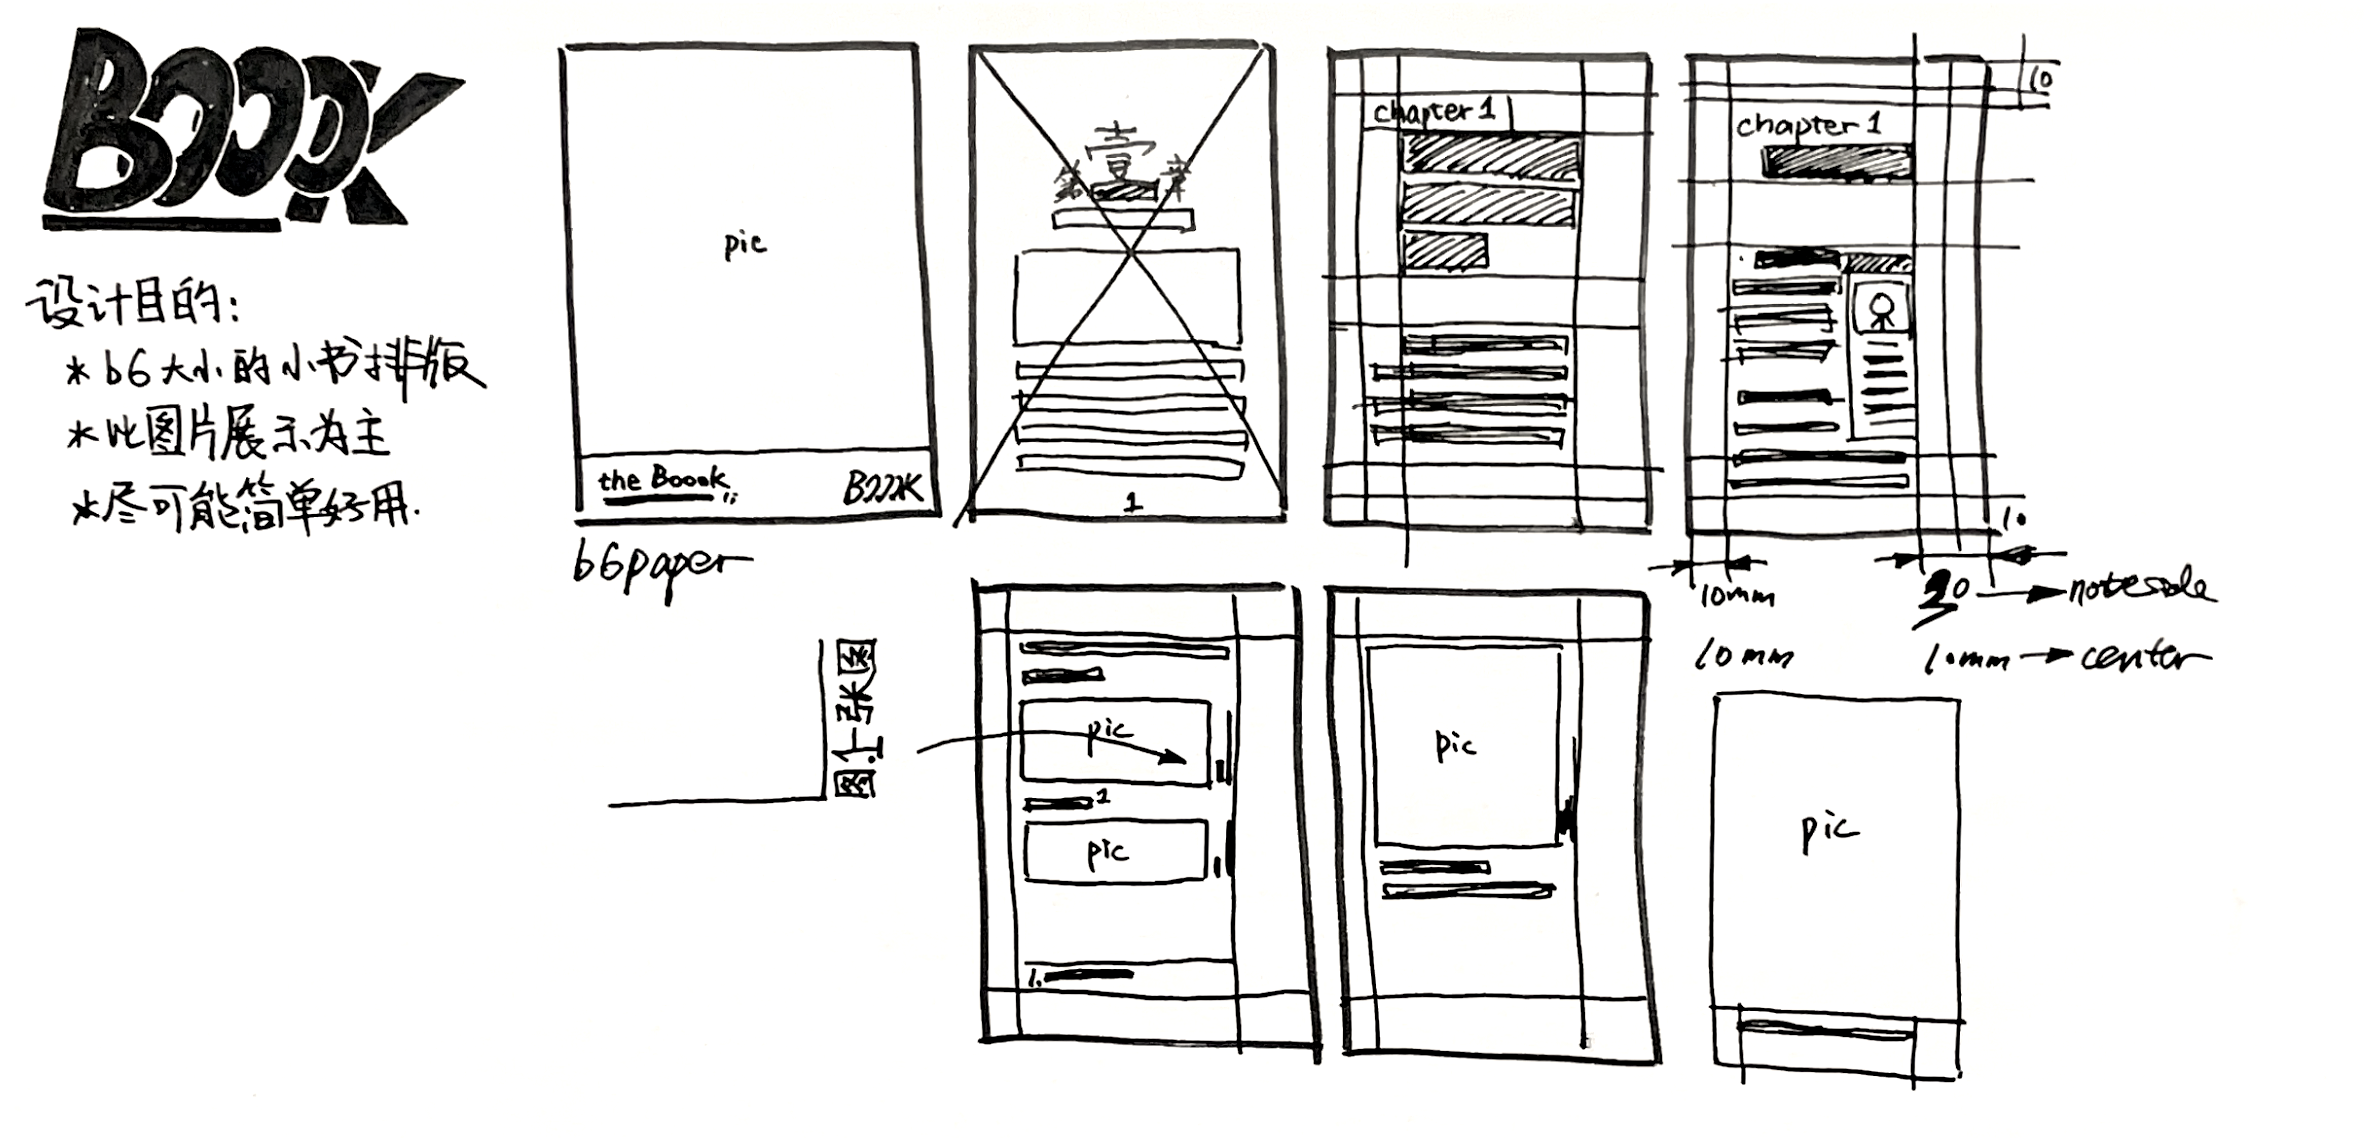 BOOOK
设计目的:
* b6大小的小书排版
* 以图片展示为主
* 尽可能简单好用.
pic
the Boook
BOOOK
b6paper
壹
第 章
1
chapter 1
chapter 1
10
10
10mm
30 → noteside
10mm
10mm → center
图.上张图
pic
1
pic
1.
pic
pic